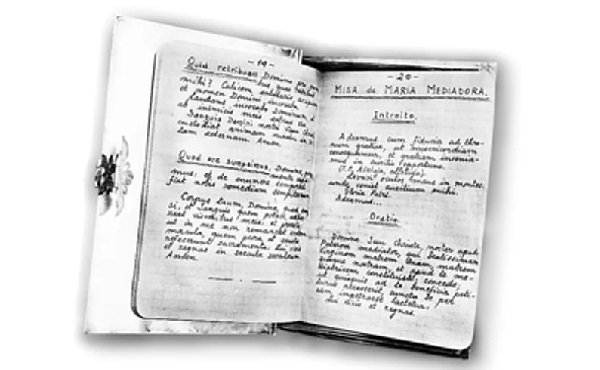 - 19 -
Quid retribuam Domino pro
quae
mihi? Calicem salutaris
et nomen Domini invocabo.
Laudans invocabo Dominum, et
ab inimicis meis salvus
Sanguis Domini nostri
custodiat animam meam in vi-
tam aeternam. Amen.
Quod ore sumpsimus, Domine,
mus, et de munere temporali
fiat nobis remedium
Corpus tuum, Domine, quod
si, et Sanguis quem potavi,
reat visceribus meis, et
ut in me non remaneat
macula, quem pura et sancta
refecerunt sacramenta. Qui vivis
et regnas in saecula saeculorum.
Amen.
- 20 -
MISA de MARIA MEDIADORA.
Introito.
Adeamus cum fiducia ad thro-
num gratiae, ut misericordiam
consequamur, et gratiam invenia-
mus in auxilio opportuno.
(T.P. Alleluia, alleluia).
Levavi oculos meos in montes,
unde veniet auxilium mihi.
Gloria Patri.
Adeamus...
Oratio.
Domine Jesu Christe, noster apud
Patrem mediator, qui beatissimam
Virginem matrem tuam, matrem
quoque nostram, et apud te me-
diatricem constituisti; concede,
ut quisquis ad te beneficia peti-
turus accesserit, cuncta se per
eam impetrasse laetetur.
Qui vivis et regnas.